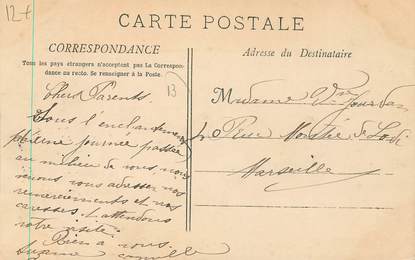 12+
CARTE POSTALE
CORRESPONDANCE
Tous les pays étrangers n'acceptent pas la Correspon-
dance au recto. Se renseigner à la Poste.
Adresse du Destinataire
13
Chers Parents.
Sous l'enchantement
journée passée
au milieu de vous, nous
venons vous adresser nos
remerciements et nos
caresses. L'attendons
votre visite.
Bien à vous.
Suzanne Camille
Madame Vve Jourdan
Rue de Lodi
Marseille